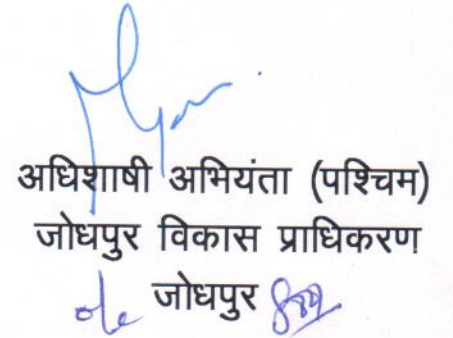 अधिशाषी अभियंता (पश्चिम)
जोधपुर विकास प्राधिकरण
जोधपुर